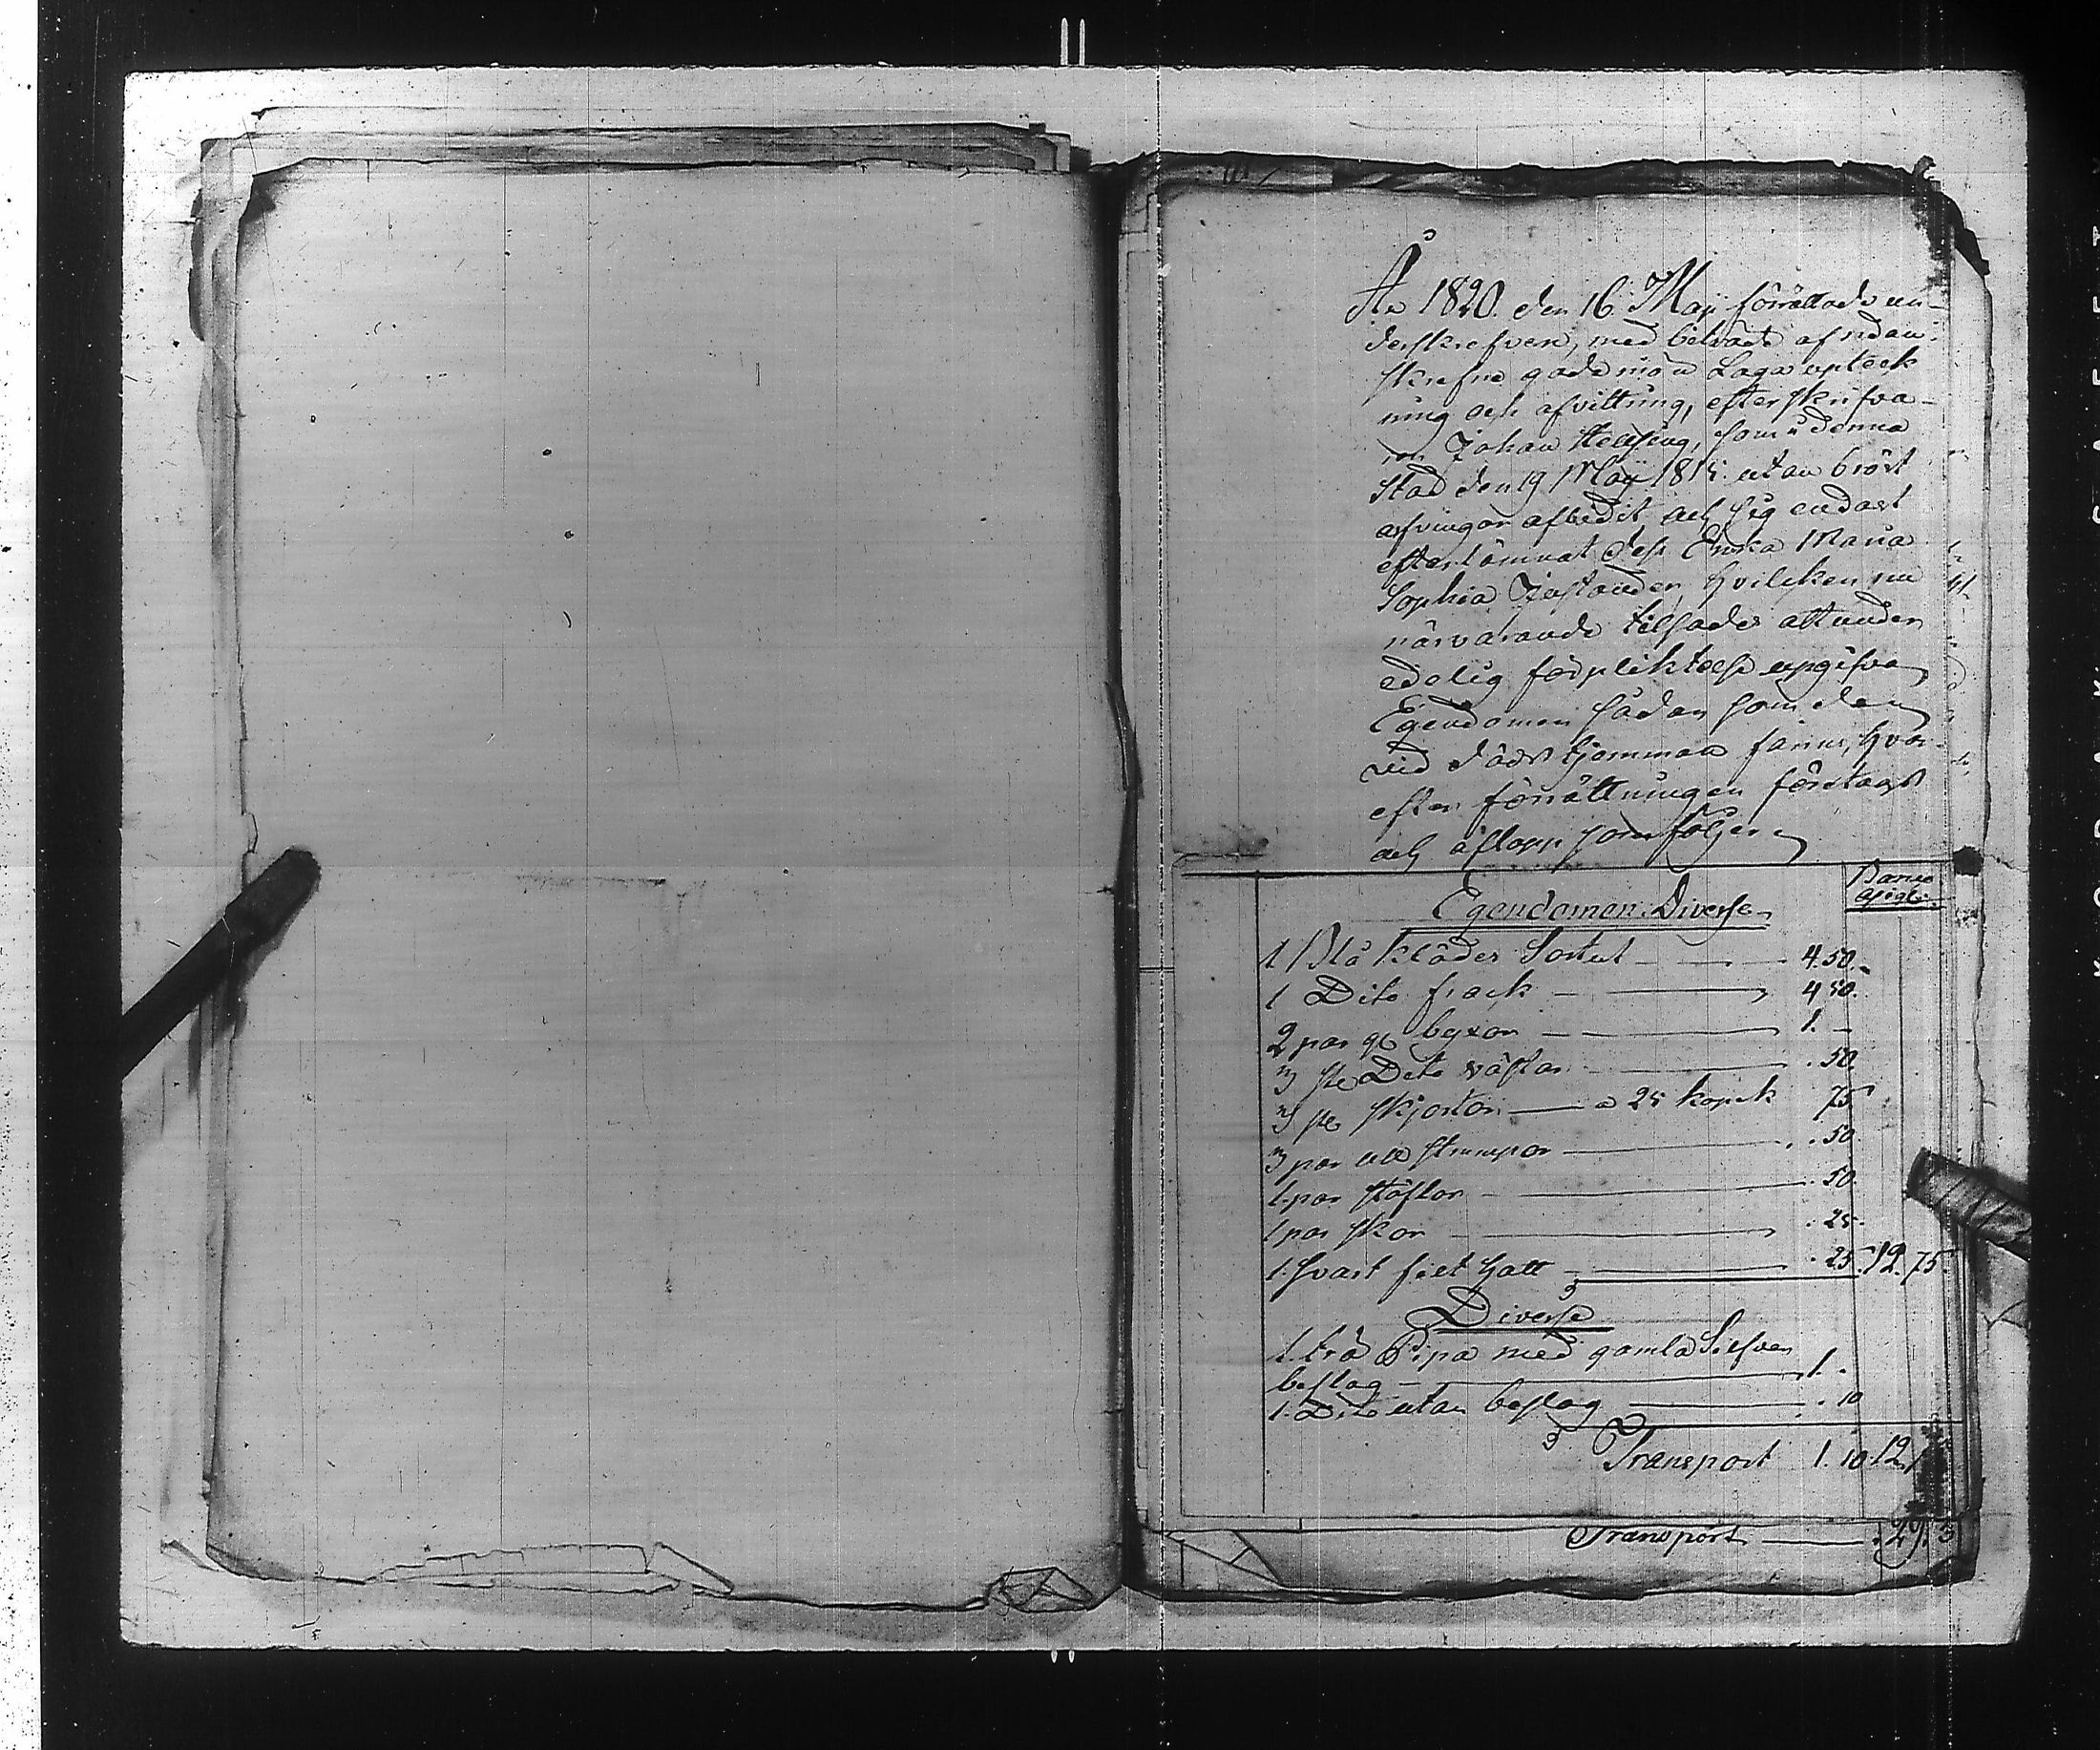 År 1820. den 16 Maÿ förrättade un-
derskrefven, med biträde af nedan-
skrefne gode män Laga upteck
ning och afvittring, efter skrifva-
ren Johan Hellsing, som i denna
stad den 19 Maÿ 1815. utan bröst
arfvingar aflidit, och sig endast
efterlämnat dess Enka Maria
Sophia, hvilcken nu
närvarande tilsades att under
edelig förpliktelse upgifva
Egendomen sådan som den
vid dödstjomman fanns, hvar-
efter förrättningen företags
och aflopp som följer
Egendomen: Diverse
Banco
1 Blå klädes Sortut — 4.50.
1 Dito frack — 4 50.
2 par gl byxor — 1. —
3 st Dito västar — . 50
3 st skjortor — a 25 kopek 75
3 par ull strumpor — . 50
1. par stöflar — . 50
1 par skor — . 25.
1. svart filt hatt — . 25 12. 75
Diverse
1. trä Pipa med gamla Silfver
beslag — 1. -
1. Dito utan beslag — . 10
Transport 1. 10 12
Transport — 29. 3